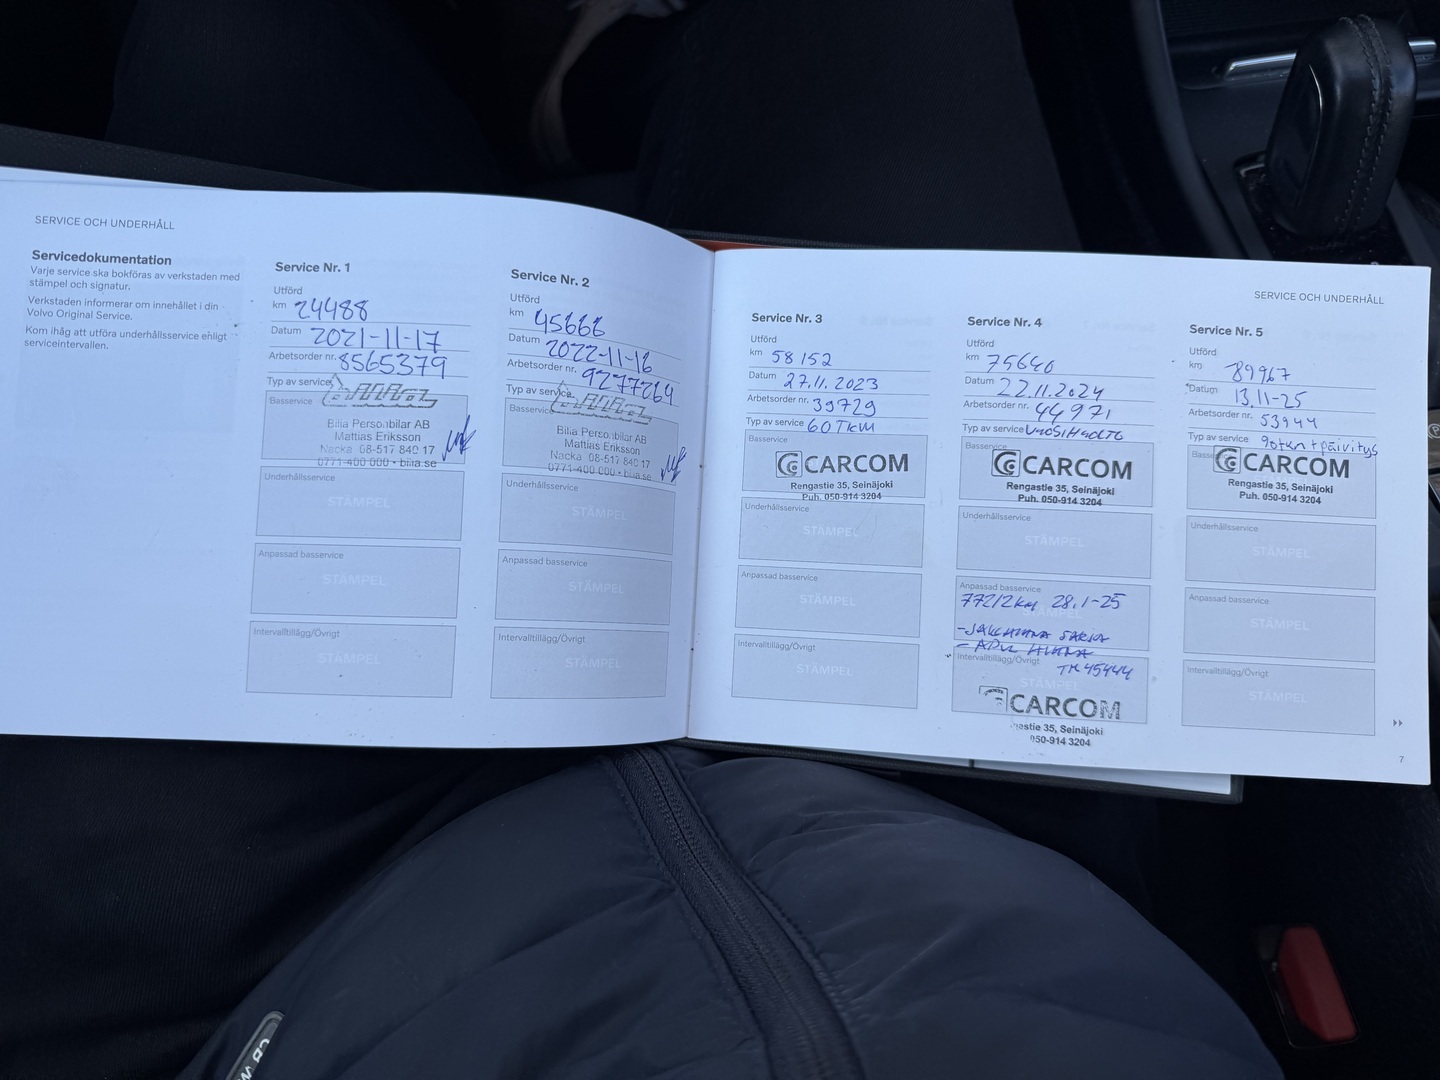 SERVICE OCH UNDERHÅLL
Servicedokumentation
Varje service ska bokföras av verkstaden med
stämpel och signatur.
Verkstaden informerar om innehållet i din
Volvo Original Service.
Kom ihåg att utföra underhållsservice enligt
serviceintervallen.
Service Nr. 1
Utförd
km 24488
Datum 2021-11-17
Arbetsorder nr. 8565379
Typ av service
Basservice
Bilia Personbilar AB
Mattias Eriksson
Nacka 08-517 840 17
0771-400 000 • bilia.se
Underhållsservice
STÄMPEL
Anpassad basservice
STÄMPEL
Intervalltillägg/Övrigt
STÄMPEL
Service Nr. 2
Utförd
km 45666
Datum 2022-11-16
Arbetsorder nr. 9277264
Typ av service
Basservice
Bilia Personbilar AB
Mattias Eriksson
Nacka 08-517 840 17
0771-400 000 • bilia.se
Underhållsservice
STÄMPEL
Anpassad basservice
STÄMPEL
Intervalltillägg/Övrigt
STÄMPEL
SERVICE OCH UNDERHÅLL
Service Nr. 3
Utförd
km 58152
Datum 27.11.2023
Arbetsorder nr. 39729
Typ av service 60TKM
Basservice
CARCOM
Rengastie 35, Seinäjoki
Puh. 050-914 3204
Underhållsservice
STÄMPEL
Anpassad basservice
STÄMPEL
Intervalltillägg/Övrigt
STÄMPEL
Service Nr. 4
Utförd
km 75640
Datum 22.11.2024
Arbetsorder nr. 44971
Typ av service VUOSIHUOLTO
Basservice
CARCOM
Rengastie 35, Seinäjoki
Puh. 050-914 3204
Underhållsservice
STÄMPEL
Anpassad basservice
77212km 28.1-25
-JAKOHIHNA SARJA
- APUL HIHNA
Intervalltillägg/Övrigt
TM 45444
STÄMPEL
CARCOM
Rengastie 35, Seinäjoki
050-914 3204
Service Nr. 5
Utförd
km 89967
Datum 13.11-25
Arbetsorder nr. 53944
Typ av service 90tkm + päivitys
Basservice
CARCOM
Rengastie 35, Seinäjoki
Puh. 050-914 3204
Underhållsservice
STÄMPEL
Anpassad basservice
STÄMPEL
Intervalltillägg/Övrigt
STÄMPEL
7